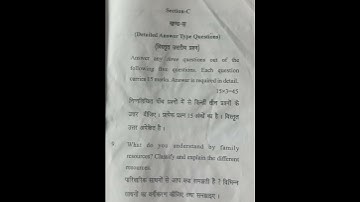 Section-C
खण्ड-स
(Detailed Answer Type Questions)
(विस्तृत उत्तरीय प्रश्न)
Answer any three questions out of the
following five questions. Each question
carries 15 marks. Answer is required in detail.
15×3=45
निम्नलिखित पाँच प्रश्नों में से किन्हीं तीन प्रश्नों के
उत्तर दीजिए। प्रत्येक प्रश्न 15 अंकों का है। विस्तृत
उत्तर अपेक्षित है।
9. What do you understand by family
resources? Classify and explain the different
resources.
पारिवारिक साधनों से आप क्या समझती हैं? विभिन्न
साधनों का वर्गीकरण कीजिए तथा समझाइए।